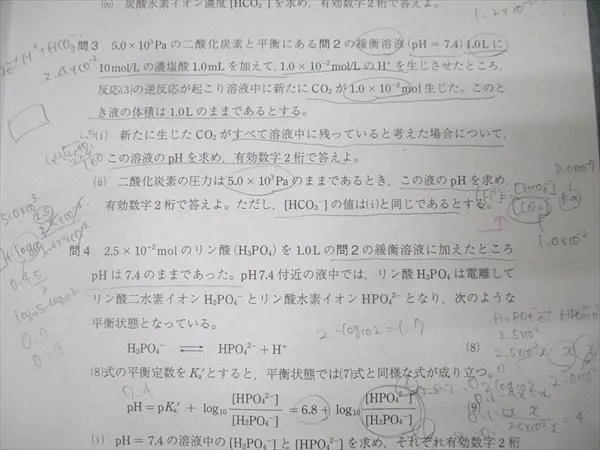 (iv) 炭酸水素イオン濃度 [HCO₃⁻] を求め，有効数字2桁で答えよ。
問3 5.0×10³Paの二酸化炭素と平衡にある問2の緩衝溶液(pH = 7.4) 1.0Lに
10mol/Lの濃塩酸1.0mLを加えて，1.0×10⁻²mol/LのH⁺を生じさせたところ，
反応(3)の逆反応が起こり溶液中に新たにCO₂が1.0×10⁻²mol生じた。このと
き液の体積は1.0Lのままであるとする。
(i) 新たに生じたCO₂がすべて溶液中に残っていると考えた場合について，
この溶液のpHを求め，有効数字2桁で答えよ。
(ii) 二酸化炭素の圧力は5.0×10³Paのままであるとき，この液のpHを求め，
有効数字2桁で答えよ。ただし，[HCO₃⁻]の値は(i)と同じであるとする。
問4 2.5×10⁻²molのリン酸(H₃PO₄)を1.0Lの問2の緩衝溶液に加えたところ
pHは7.4のままであった。pH7.4付近の液中では，リン酸H₃PO₄は電離して
リン酸二水素イオンH₂PO₄⁻とリン酸水素イオンHPO₄²⁻となり，次のような
平衡状態となっている。
2-log₁₀2=1.7
H₂PO₄⁻ ⇄ HPO₄²⁻ + H⁺ (8)
(8)式の平衡定数をKₐ′とすると，平衡状態では(7)式と同様な式が成り立つ。
7.4
pH = pKₐ′ + log₁₀ [HPO₄²⁻]/[H₂PO₄⁻] = 6.8 + log₁₀ [HPO₄²⁻]/[H₂PO₄⁻] (9)
(i) pH = 7.4の溶液中の[HPO₄²⁻]と[H₂PO₄⁻]を求め，それぞれ有効数字2桁